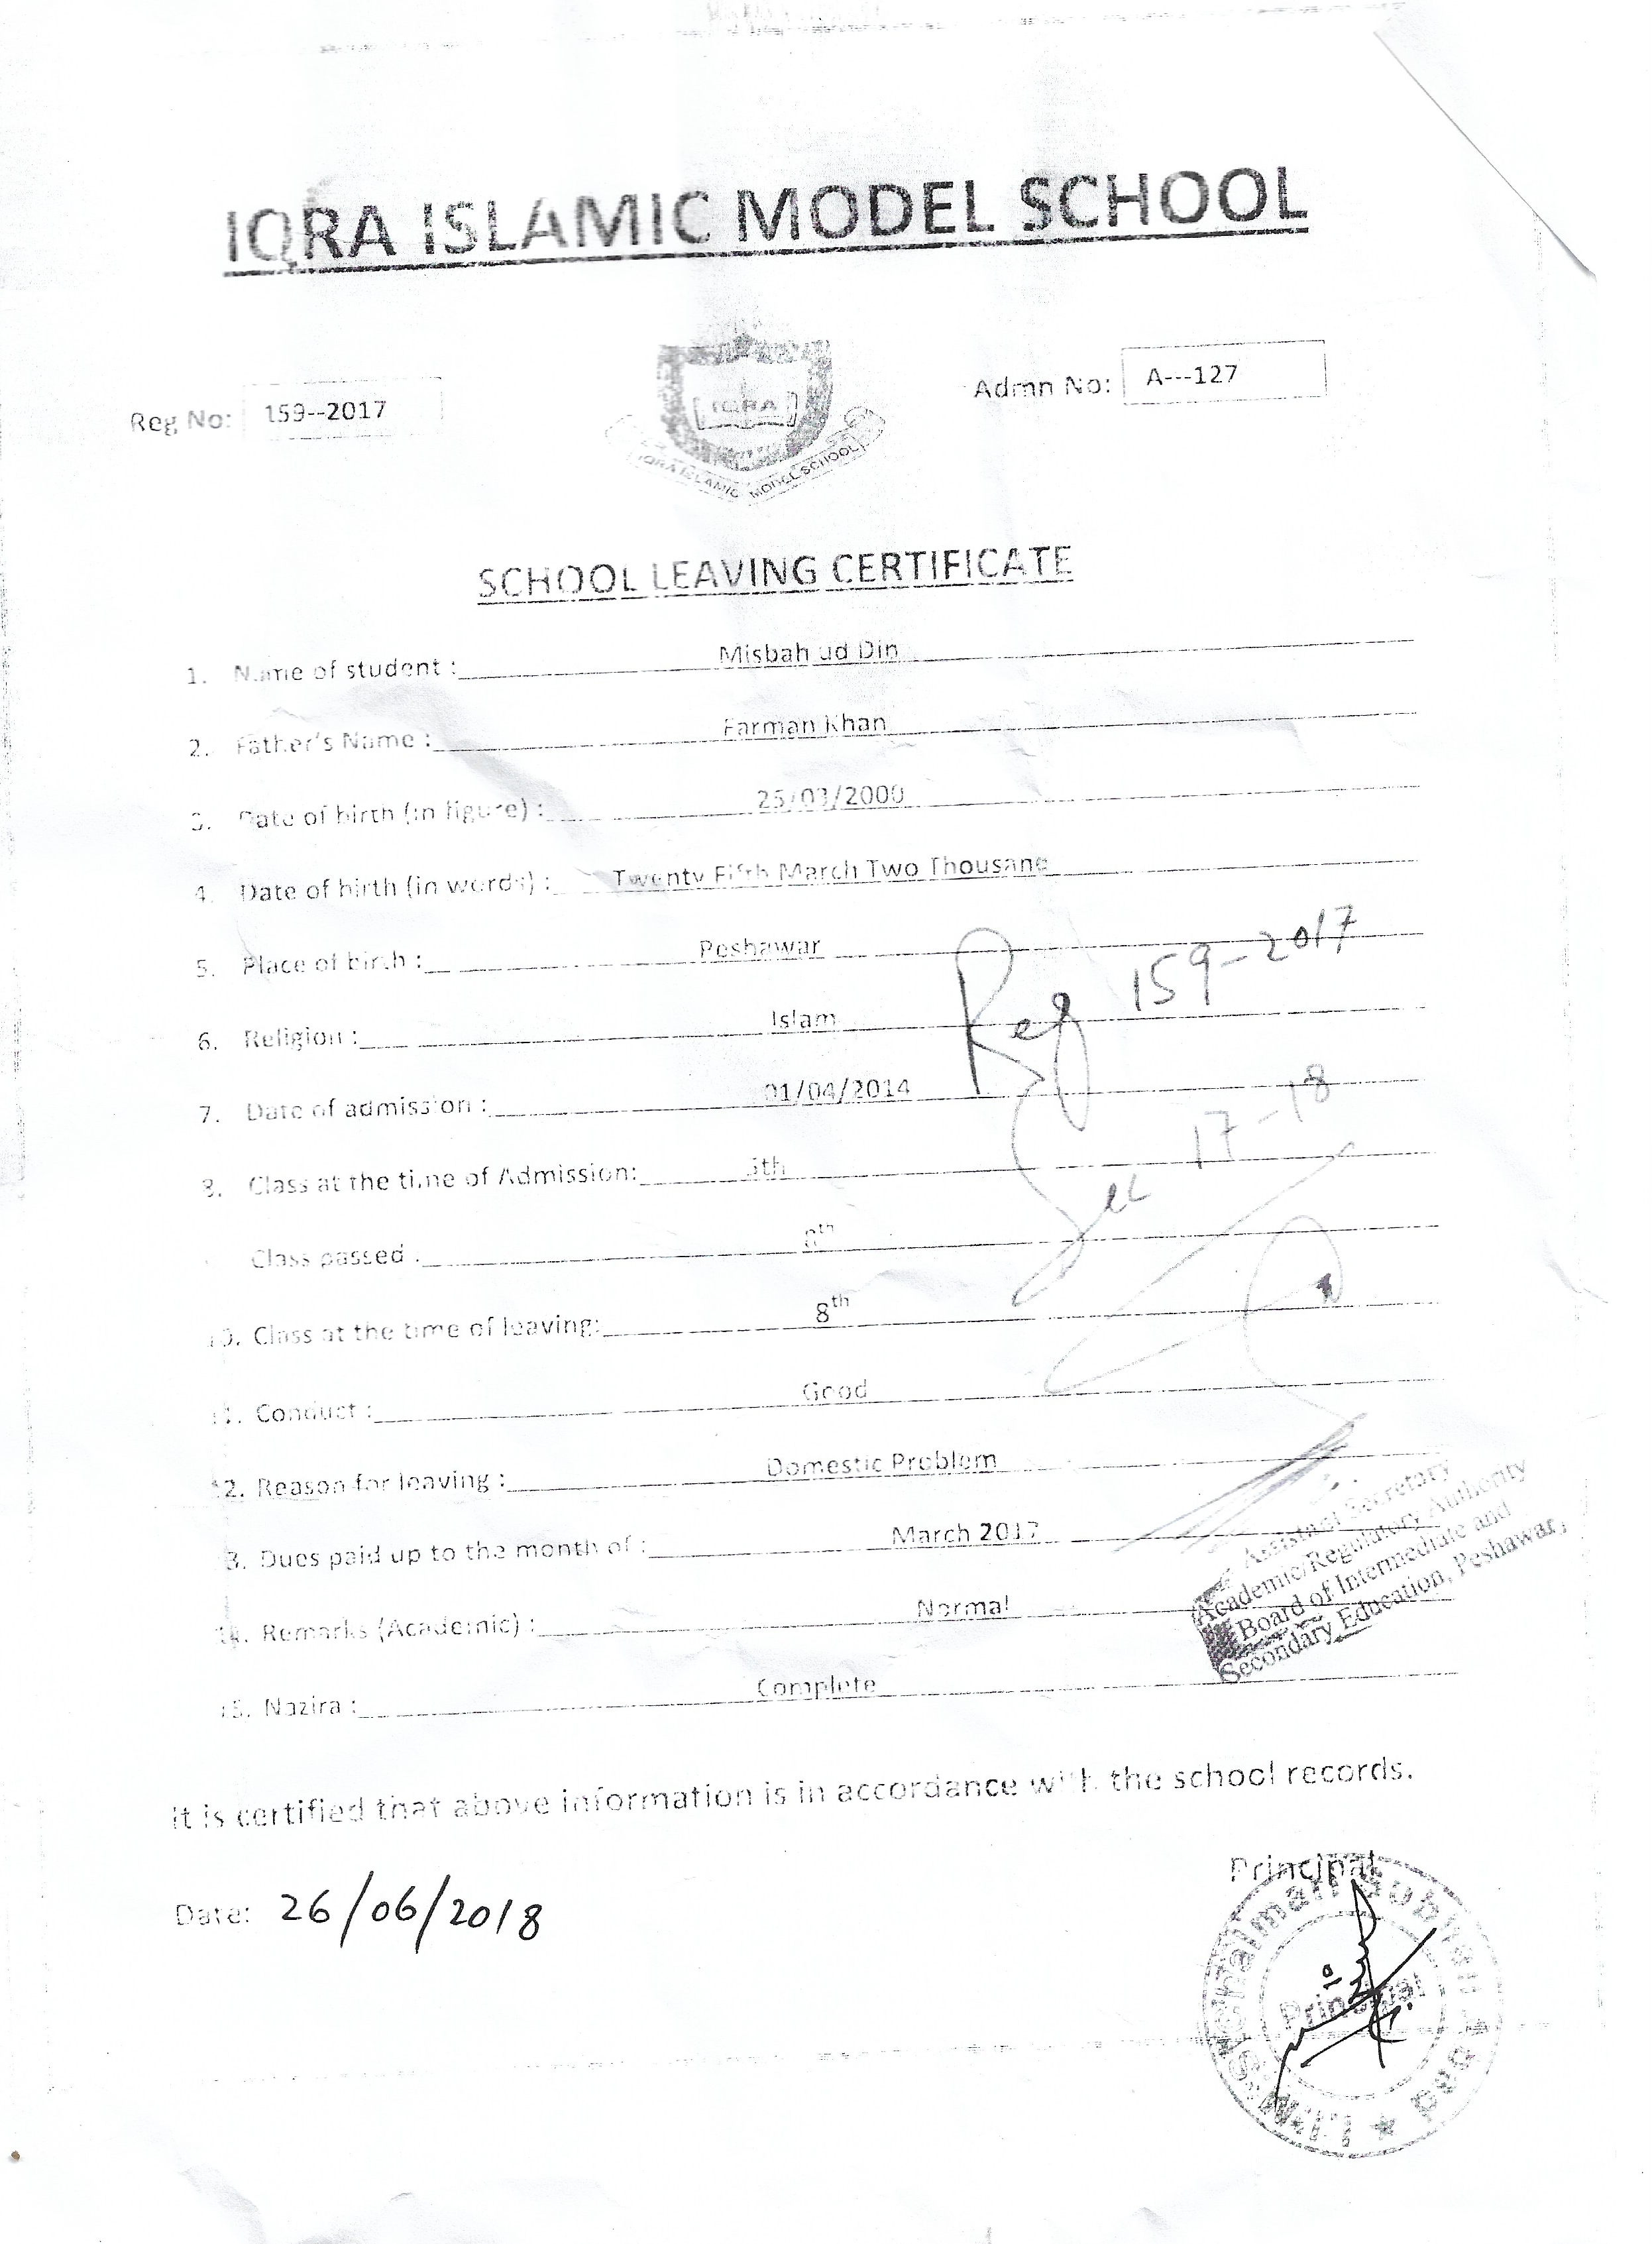 IQRA ISLAMIC MODEL SCHOOL
Reg No: 159--2017
Admn No: A---127
IQRA
IQRA ISLAMIC MODEL SCHOOL
SCHOOL LEAVING CERTIFICATE
1. Name of student : Misbah ud Din
2. Father's Name : Farman Khan
3. Date of birth (in figure) : 25/03/2000
4. Date of birth (in words) : Twenty Fifth March Two Thousand
5. Place of birth : Peshawar
6. Religion : Islam
Reg 159-2017
7. Date of admission : 01/04/2014
17-18
8. Class at the time of Admission: 
Class passed : 
10. Class at the time of leaving: 8th
11. Conduct : Good
12. Reason for leaving : Domestic Problem
13. Dues paid up to the month of : March 2017
14. Remarks (Academic) : Normal
15. Nazira : Complete
Assistant Secretary
Academic/Regulatory Authority
Board of Intermediate and
Secondary Education, Peshawar
It is certified that above information is in accordance with the school records.
Date: 26/06/2018
Principal
Principal